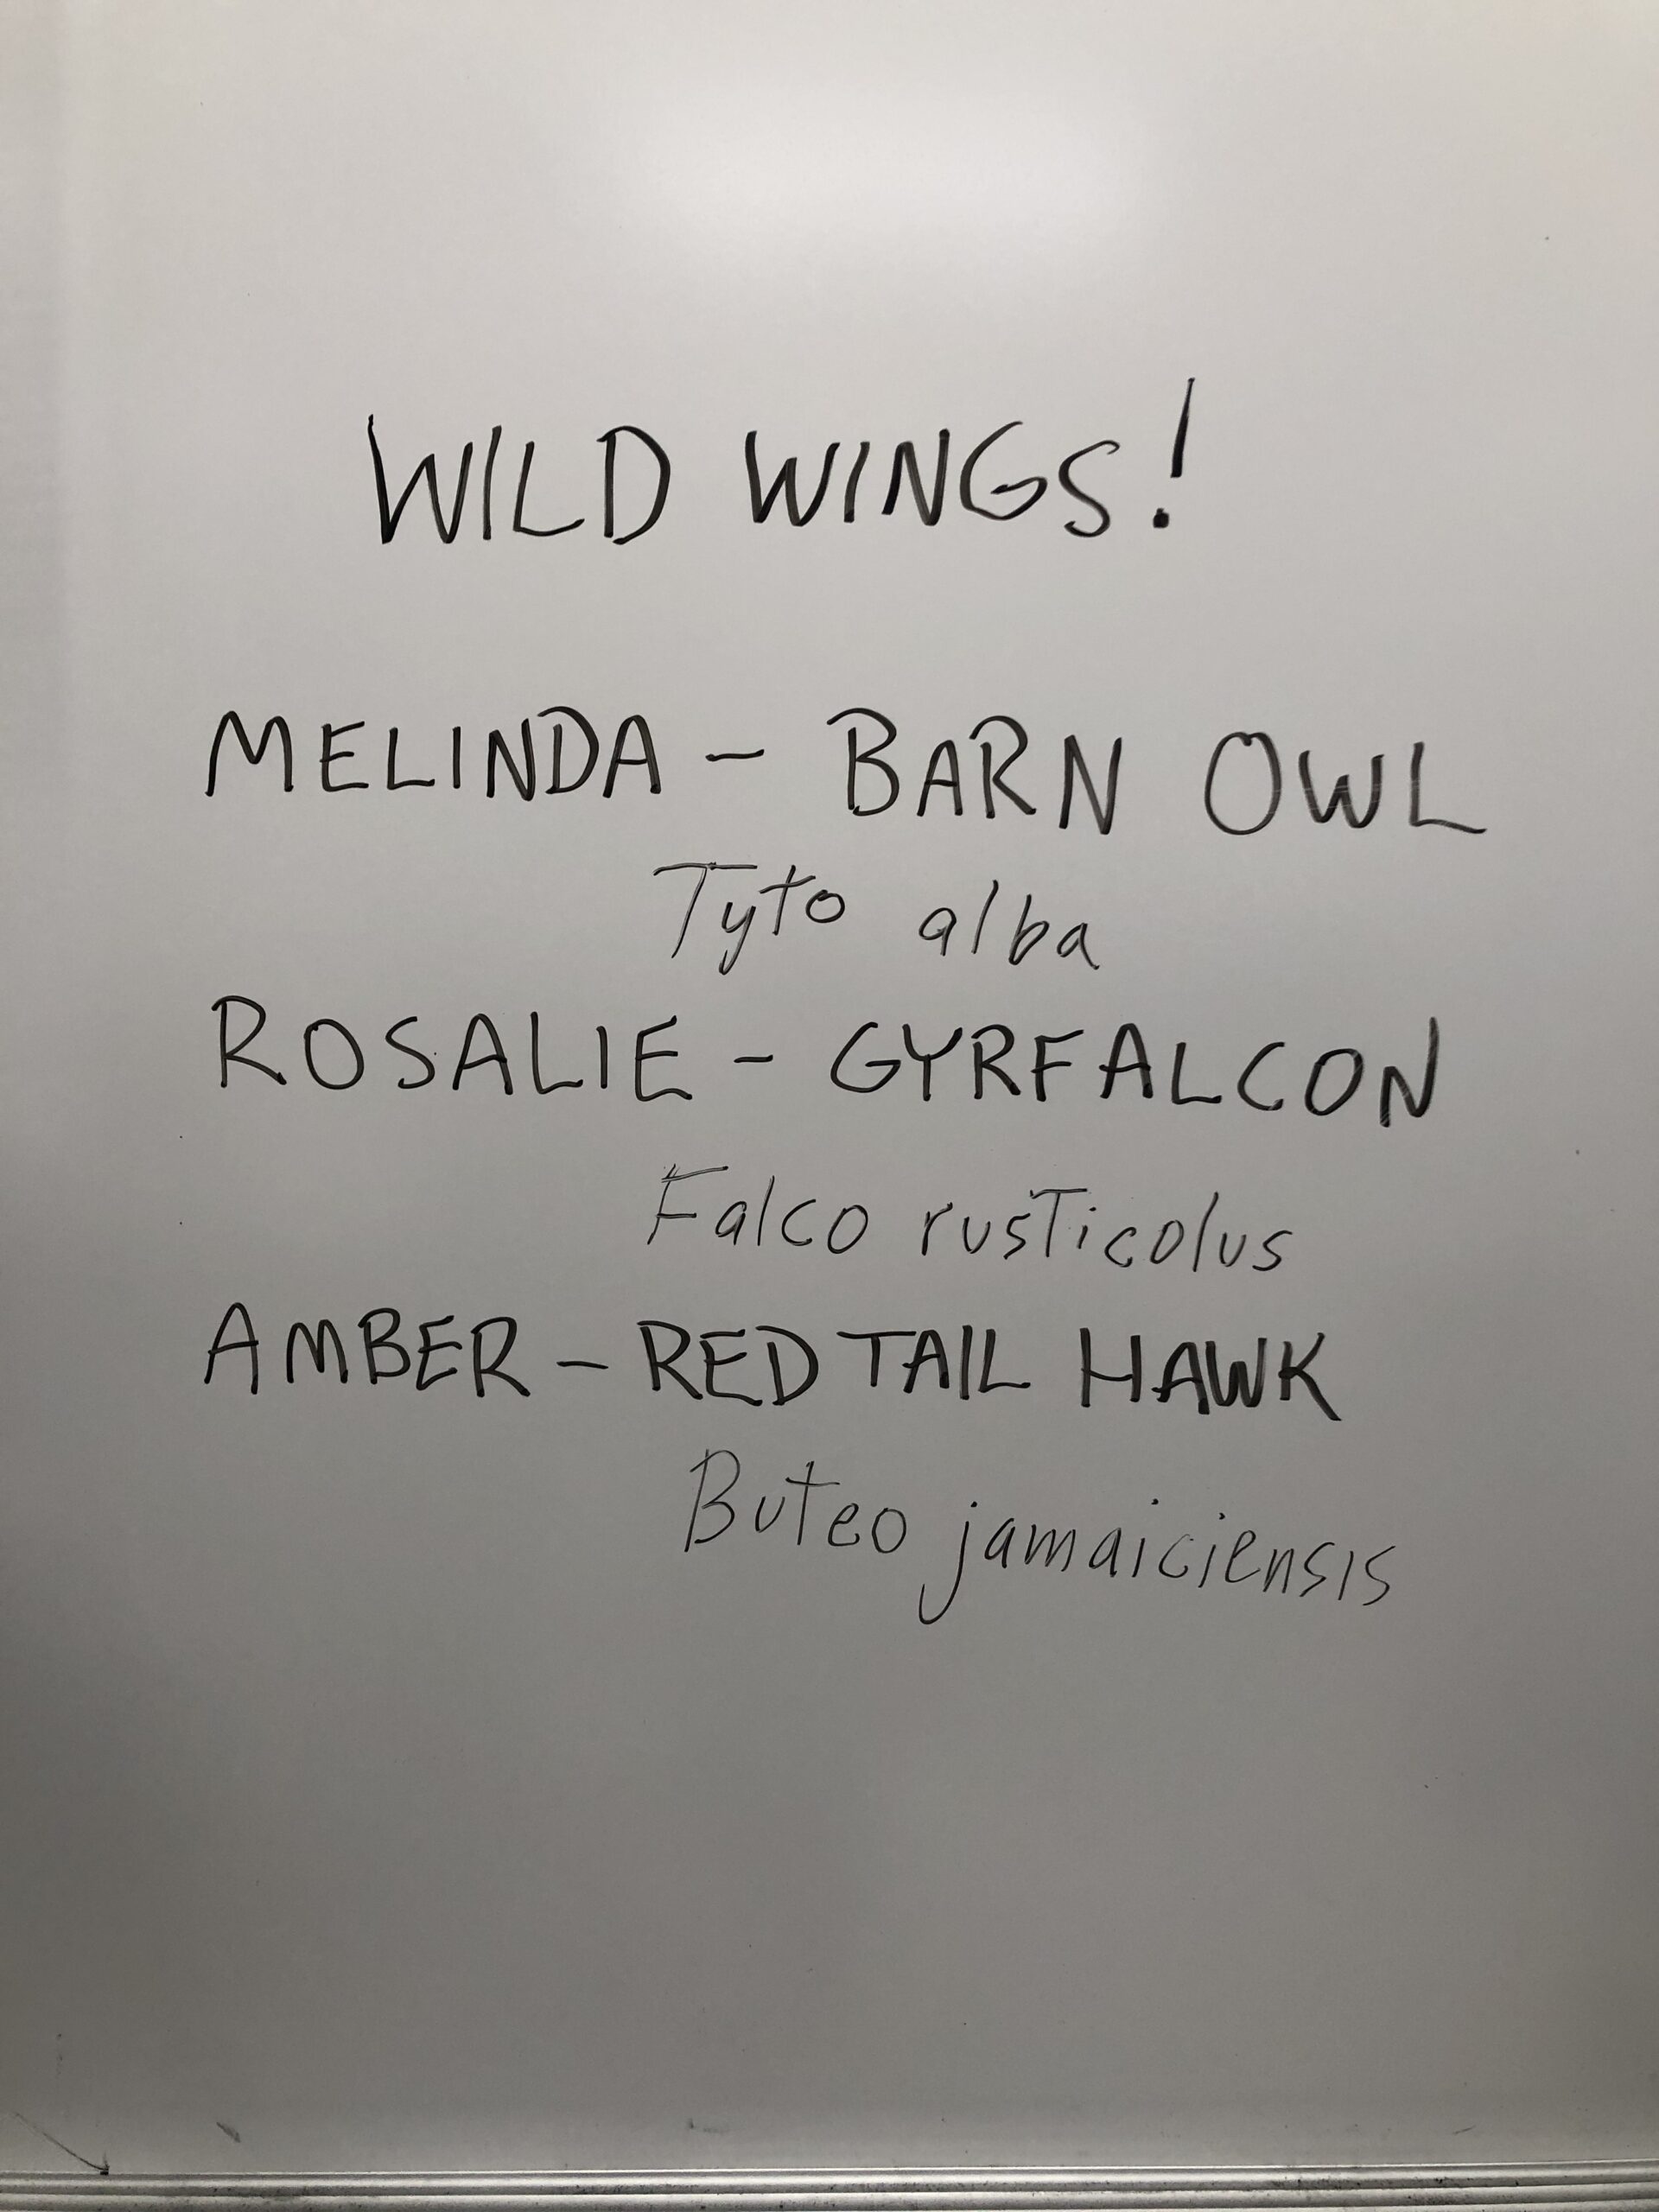 WILD WINGS!
MELINDA - BARN OWL
Tyto alba
ROSALIE - GYRFALCON
Falco rusticolus
AMBER - RED TAIL HAWK
Buteo jamaiciensis